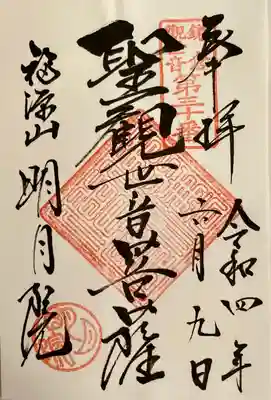 奉拝
令和四年
六月九日
鎌倉
観音
第三十番
聖観世音菩薩
福源山
明月院